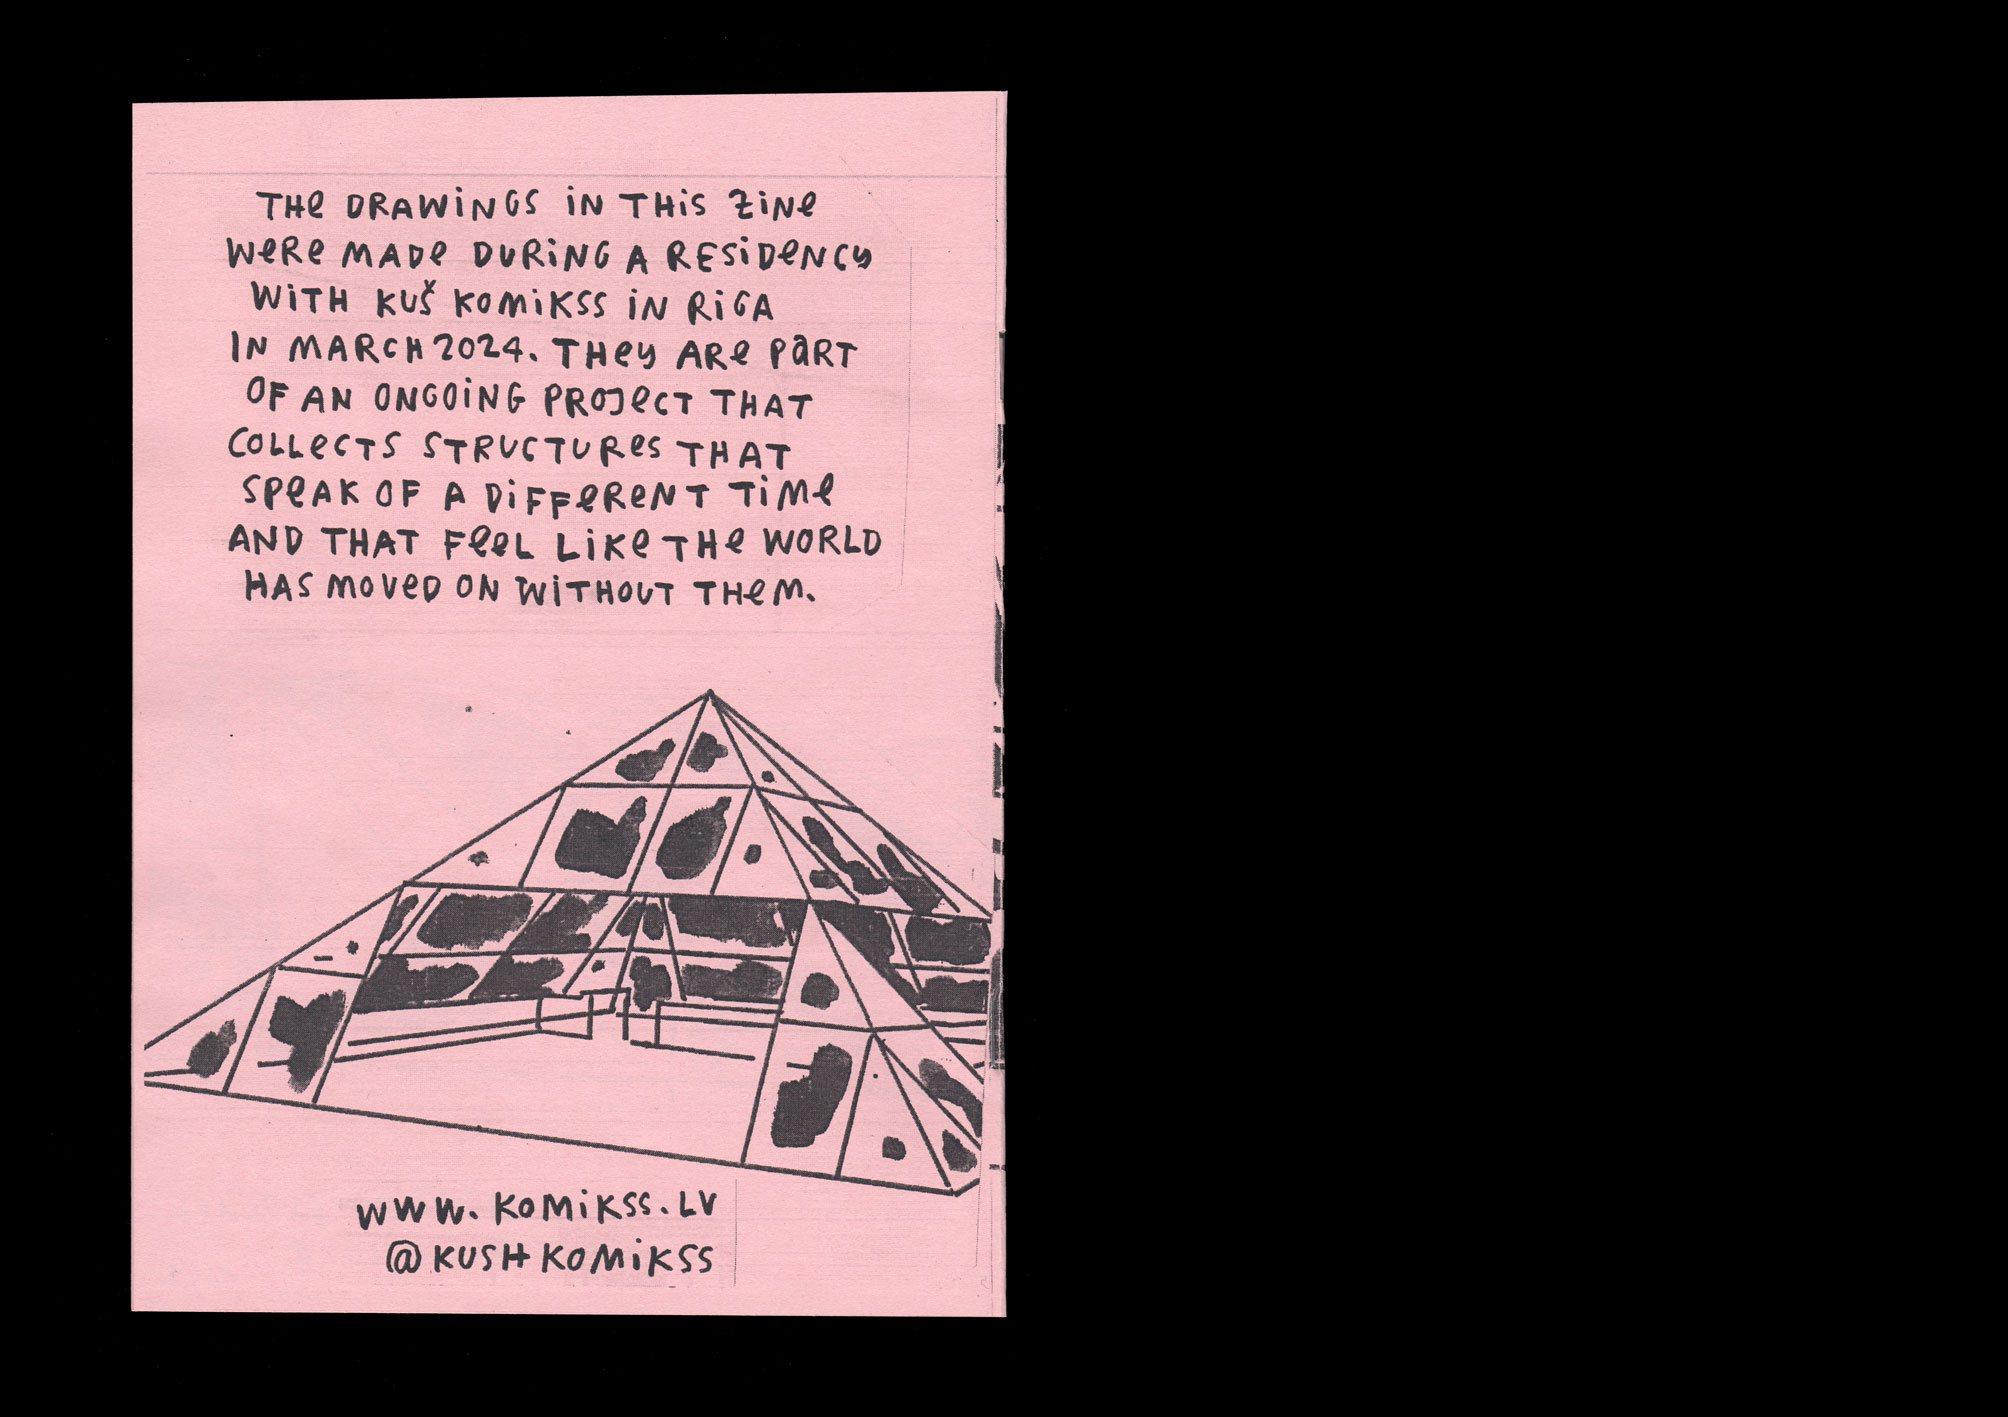 THE DRAWINGS IN THIS ZINE
WERE MADE DURING A RESIDENCY
WITH KUŠ KOMIKSS IN RIGA
IN MARCH 2024. THEY ARE PART
OF AN ONGOING PROJECT THAT
COLLECTS STRUCTURES THAT
SPEAK OF A DIFFERENT TIME
AND THAT FEEL LIKE THE WORLD
HAS MOVED ON WITHOUT THEM.
WWW.KOMIKSS.LV
@KUSHKOMIKSS